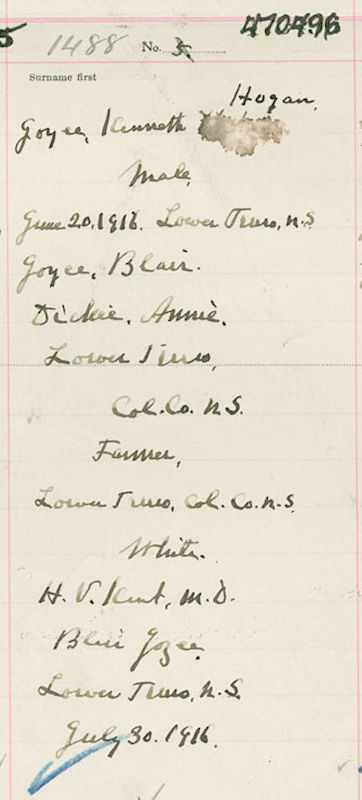 5 1488 No. 5 470496
Surname first
Hogan,
Goyee, Kenneth
Male,
June 20, 1916. Lower Truro, N.S.
Goyee, Blair.
Dickie, Annie.
Lower Truro,
Col. Co. N.S.
Farmer,
Lower Truro, Col. Co. N.S.
White.
H. V. Kent, M.D.
Blair Goyee.
Lower Truro, N.S.
July 30. 1916.